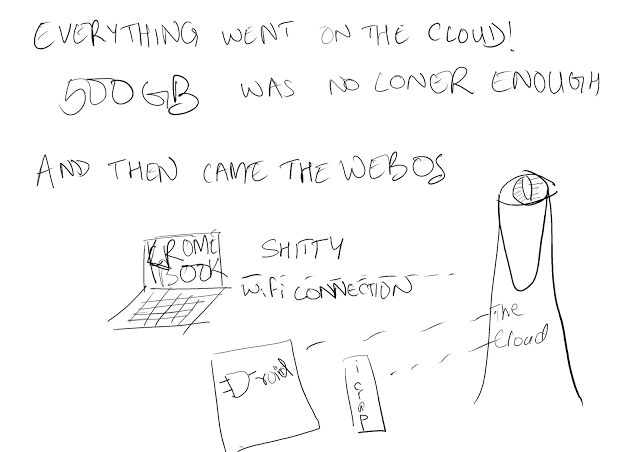 EVERYTHING WENT ON THE CLOUD!
500GB WAS NO LONER ENOUGH
AND THEN CAME THE WEBOS
CROME
BOOK
SHITTY
WiFi CONNECTION
The
Cloud
Droid
icrap